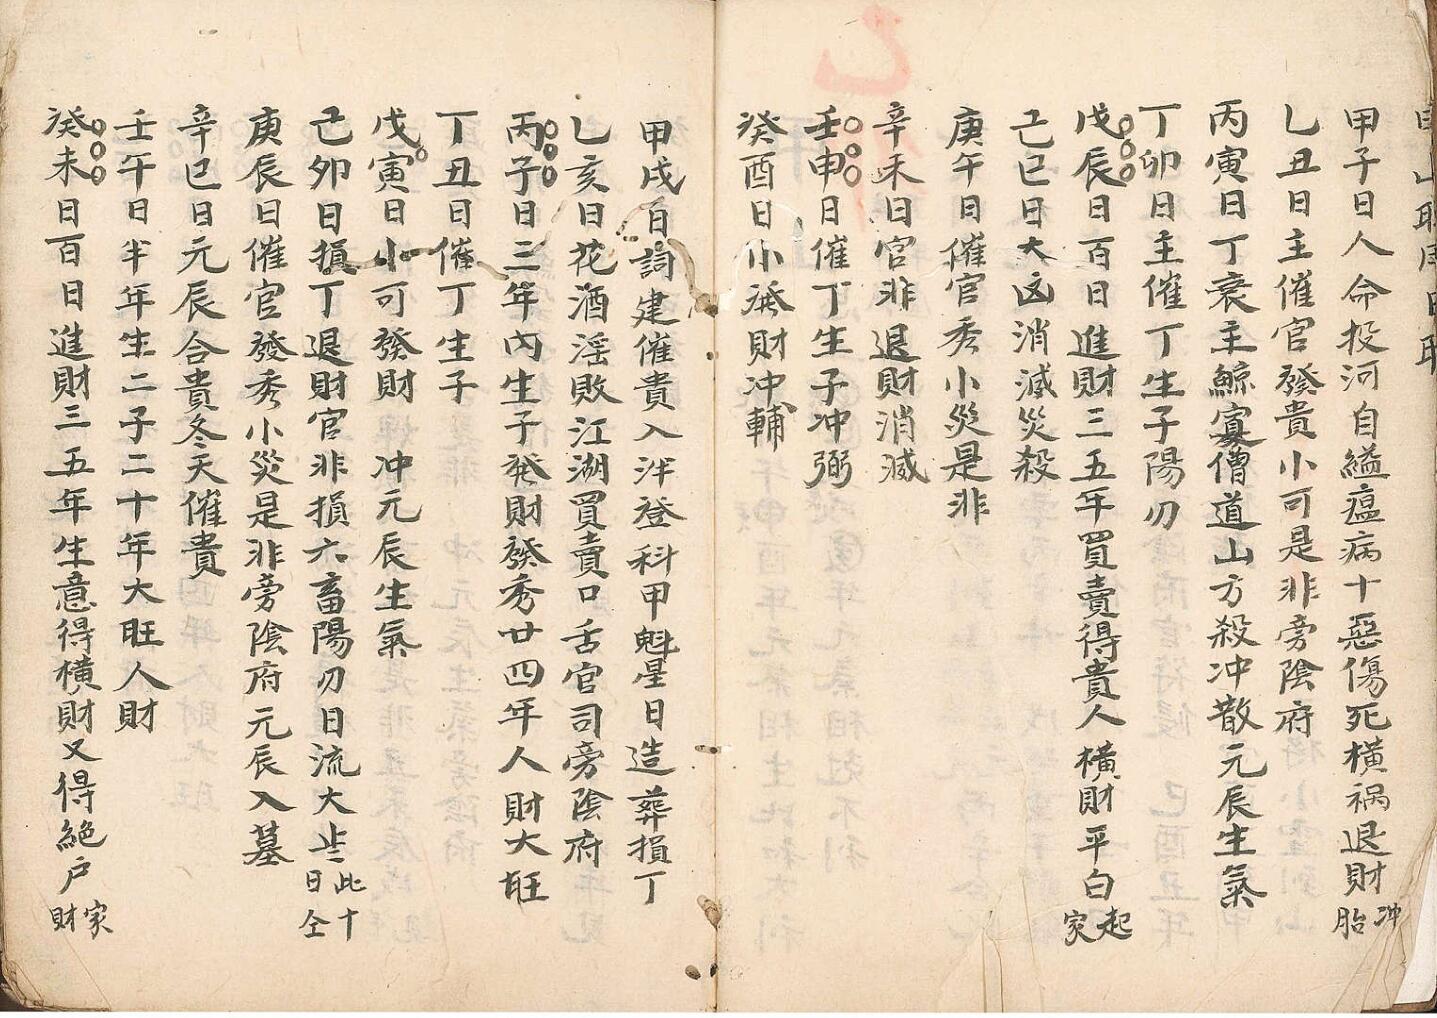 甲子日人命投河自縊瘟病十惡傷死橫禍退財冲胎
乙丑日主催官發貴小可是非旁陰府
丙寅日丁衰主鰥寡僧道山方殺冲散元辰生氣
丁卯日主催丁生子陽刃
戊辰日百日進財三五年買賣得貴人橫財平白起家
己巳日大凶消滅災殺
庚午日催官秀小災是非
辛未日官非退財消滅
壬申日催丁生子冲弼
癸酉日小發財冲輔
甲戌日詞建催貴入泮登科甲魁星日造葬損丁
乙亥日花酒淫敗江湖買賣口舌官司旁陰府
丙子日三年內生子發財發秀廿四年人財大旺
丁丑日催丁生子
戊寅日小可發財 冲元辰生氣
己卯日損丁退財官非損六畜陽刃日流大 此十日仝
庚辰日催官發秀小災是非旁陰府元辰入墓
辛巳日元辰合貴冬天催貴
壬午日半年生二子二十年大旺人財
癸未日百日進財三五年生意得橫財又得絕戶家財